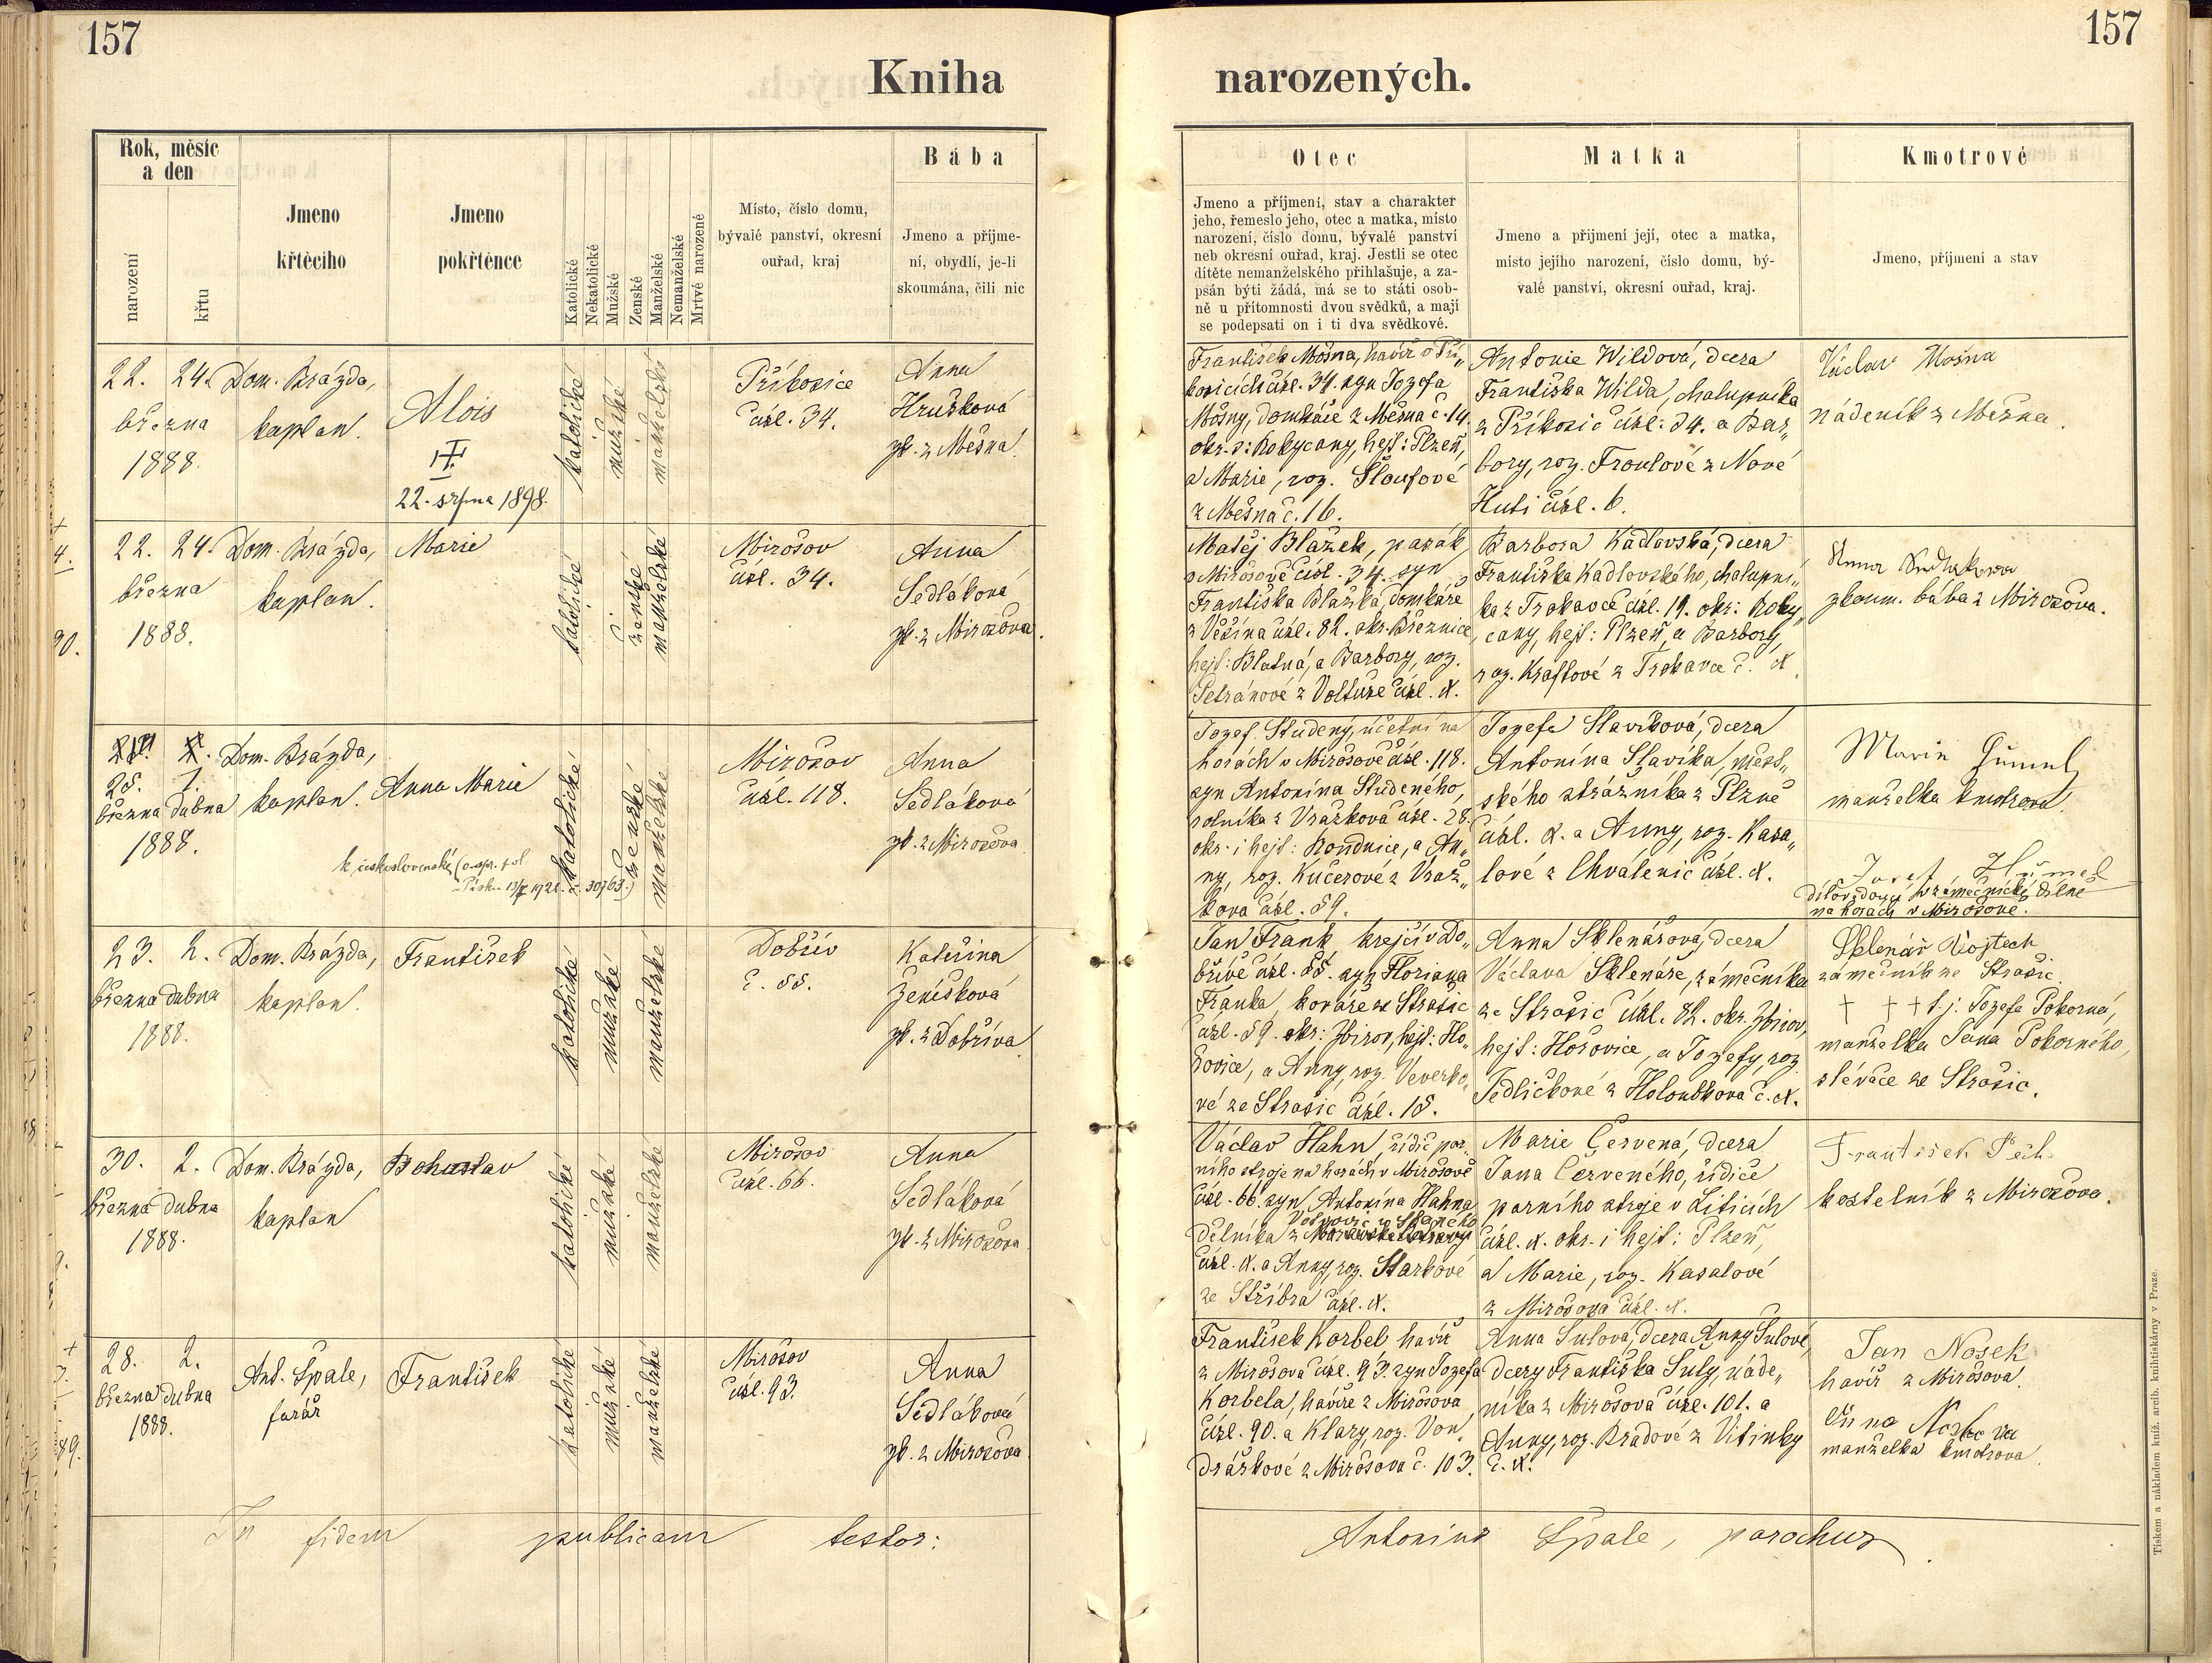 157
157
Kniha narozených.
Rok, měsíc
a den
narození
křtu
Jmeno
křtěcího
Jmeno
pokřtěnce
Katolické
Nekatolické
Mužské
Ženské
Manželské
Nemanželské
Mrtvé narozené
Místo, číslo domu,
bývalé panství, okresní
ouřad, kraj
Bába
Jmeno a příjme-
ní, obydlí, je-li
skoumána, čili nic
Otec
Jmeno a příjmení, stav a charakter
jeho, řemeslo jeho, otec a matka, místo
narození, číslo domu, bývalé panství
neb okresní ouřad, kraj. Jestli se otec
dítěte nemanželského přihlašuje, a za-
psán býti žádá, má se to státi osob-
ně u přítomnosti dvou svědků, a mají
se podepsati on i ti dva svědkové.
Matka
Jmeno a přijmení její, otec a matka,
místo jejího narození, číslo domu, bý-
valé panství, okresní ouřad, kraj.
Kmotrové
Jmeno, příjmení a stav
22. 24.
března
1888.
Dom. Brázda,
kaplan.
Alois
22. srpna 1898.
katolické
mužské
manželské
Příkosice
čísl. 34.
Anna
Hrušková
zk. z Mešna.
František Mošna, havíř v Pří„
kosicích čísl. 34. syn Jozefa
Mošny, domkáře z Mešna č. 14.
okr. s: Rokycany, hejt: Plzeň,
a Marie, roz. Šloufové
z Mešna č. 16.
Antonie Wildová, dcera
Františka Wilda, chalupníka
z Příkosic čísl. 34. a Bar„
bory, roz. Froulové z Nové
Huti čísl. 6.
Václav Mošna
nádeník z Mešna.
22. 24.
března
1888.
Dom. Brázda,
kaplan.
Marie
katolické
ženské
manželské
Mirošov
čísl. 34.
Anna
Sedláková
zk. z Mirošova.
Matěj Blažek, pasák
v Mirošově čísl. 34. syn
Františka Blažka, domkáře
z Věšína čísl. 82. okr. Březnice,
hejt: Blatná, a Barbory, roz.
Petránové z Voltuše čísl. X.
Barbora Kadlovská, dcera
Františka Kadlovského, chalupní„
ka z Trokavce čísl. 19. okr: Roky„
cany, hejt: Plzeň, a Barbory,
roz. Kraftové z Trokavce č. X
Anna Sedlakova
zkoum. bába z Mirošova.
25. 1.
března dubna
1888.
Dom. Brázda,
kaplan.
Anna Marie
katolické
ženské
manželské
Mirošov
čísl. 118.
Anna
Sedláková
zk. z Mirošova
Jozef Studený, účetní na
horách v Mirošově čísl. 118.
syn Antonína Studeného,
rolníka z Vražkova čísl. 28.
okr. i hejt: Roudnice, a An„
ny, roz. Kučerové z Vraž„
kova čísl. 59.
Jozefa Slavíková, dcera
Antonína Slavíka, měst„
ského strážníka z Plzně
čísl. X. a Anny, roz. Kasa„
lové z Chválenic čísl. X.
manželka kmotrova
Josef Hümmel
dílovedoucí v zámečnické dílně
na horách v Mirošově.
23. 2.
března dubna
1888.
Dom. Brázda,
kaplan.
František
katolické
mužské
manželské
Dobřív
č. 55.
Kateřina
Ženíšková
zk. z Dobříva.
Jan Frank, krejčí v Do„
břívě čísl. 55. syn Floriana
Franka, kováře ze Strašic
čísl. 59. okr: Zbirov, hejt: Ho„
řovice, a Anny, roz. Veverko„
vé ze Strašic čísl. 15.
Anna Sklenářová, dcera
Václava Sklenáře, zámečníka
ze Strašic čísl. 82. okr. Zbirov,
hejt: Hořovice, a Jozefy, roz.
Jedličkové z Holoubkova č. X.
Sklenář Vojtech
zámečník ze Strašic
† † † t.j: Jozefa Pokorná,
manželka Jana Pokorného,
slévače ze Strašic.
30. 2.
března dubna
1888.
Dom. Brázda,
kaplan
Bohuslav
katolické
mužské
manželské
Mirošov
čísl. 66.
Anna
Sedláková
zk. z Mirošova
Václav Hahn, řídič par„
ního stroje na horách v Mirošově
čísl. 66. syn Antonína Hahna,
dělníka z
čísl. X. a Anny, roz. Starkové
ze Stříbra čísl. X.
Marie Červená, dcera
Jana Červeného, řídiče
parního stroje v Liticích
čísl. X. okr. i hejt: Plzeň,
a Marie, roz. Kasalové
z Mirošova čísl. X.
František Pech
kostelník z Mirošova.
28. 2.
března dubna
1888.
Ant. Špale,
farář
František
katolické
mužské
manželské
Mirošov
čísl. 93.
Anna
Sedláková
zk. z Mirošova
František Korbel, havíř
z Mirošova čísl. 93. syn Jozefa
Korbela, havíře z Mirošova
čísl. 90. a Klary, roz. Von„
dráškové z Mirošova č. 103.
Anna Šulová, dcera Anny Šulové,
dcery Františka Šuly, náde„
níka z Mirošova čísl. 101. a
Anny, roz. Bradové z Vitinky
č. X.
Jan Nosek
havíř z Mirošova.
Anna Noskova
manželka kmotrova.
In fidem publicam testor:
Antonius Špale, parochus.
Tiskem a nákladem kníž. arcib. knihtiskárny v Praze.